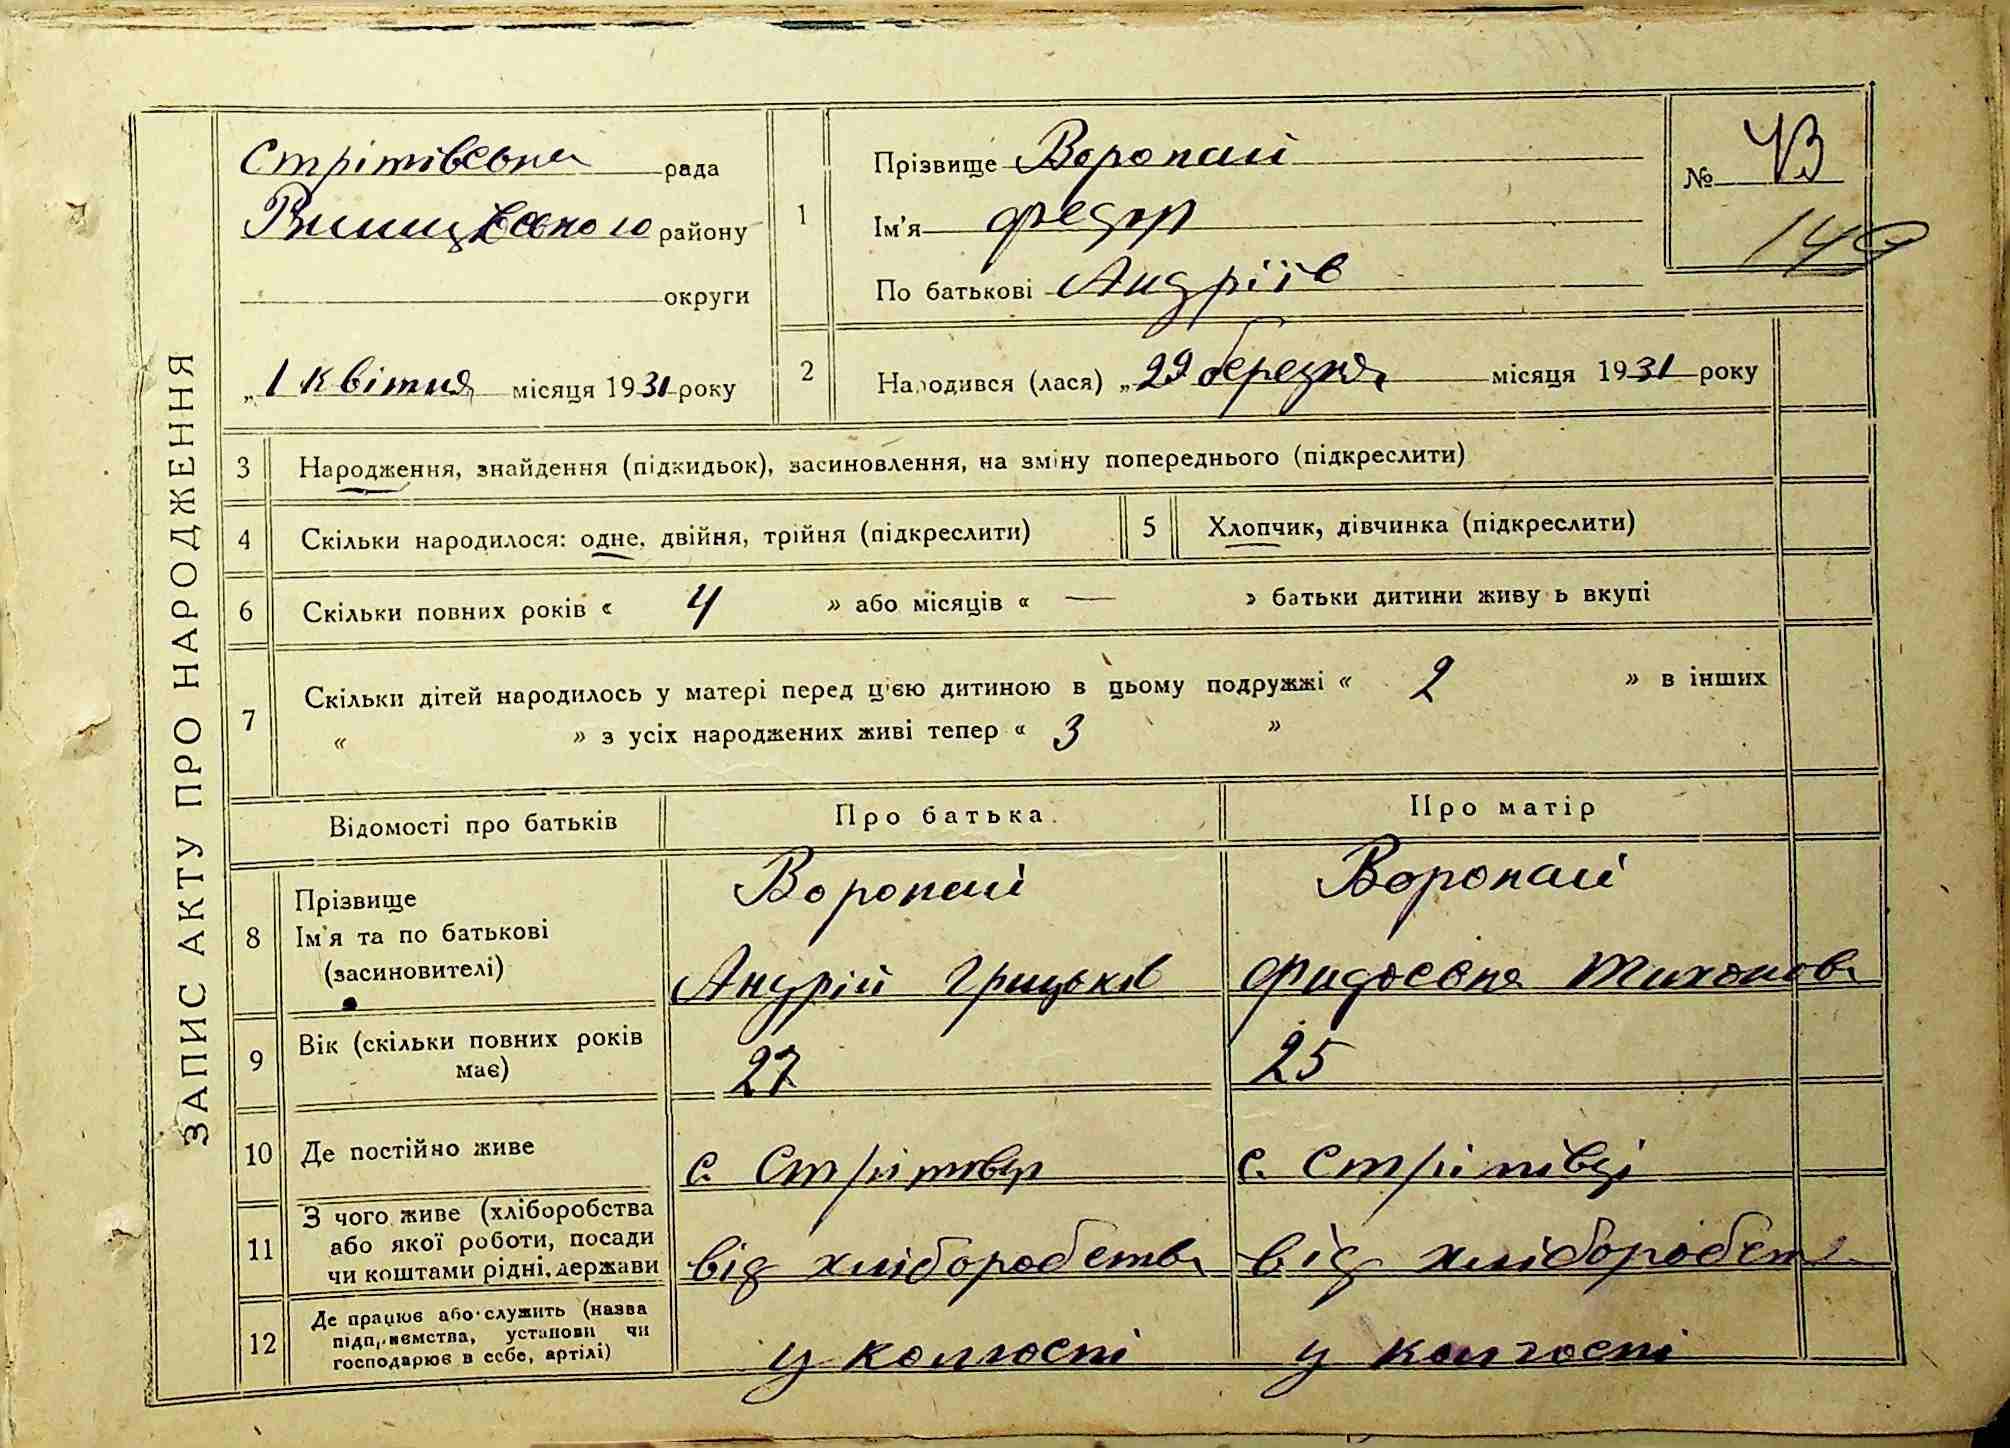 ЗАПИС АКТУ ПРО НАРОДЖЕННЯ
Стрітівська рада
району
округи
„1 квітня місяця 1931 року
1
Прізвище Воропай
Ім'я Федір
По батькові Андріїв
№ 43
149
2
Народився (лася) „29 березня місяця 1931 року
3 Народження, знайдення (підкидьок), засиновлення, на зміну попереднього (підкреслити)
4 Скільки народилося: одне, двійня, трійня (підкреслити)
5 Хлопчик, дівчинка (підкреслити)
6 Скільки повних років « 4 » або місяців « — » батьки дитини живуть вкупі
7 Скільки дітей народилось у матері перед ц'єю дитиною в цьому подружжі « 2 » в інших
« » з усіх народжених живі тепер « 3 »
Відомості про батьків
Про батька
Про матір
8 Прізвище
Ім'я та по батькові
(засиновителі)
Воропай
Андрій Грицьків
Воропай
Фидосєна Тихонова
9 Вік (скільки повних років
має)
27
25
10 Де постійно живе
с. Стрітовці
с. Стрітівці
11 З чого живе (хліборобства
або якої роботи, посади
чи коштами рідні, держави
від хліборобства
від хліборобств
12 Де працює або служить (назва
підприємства, установи чи
господарює в себе, артілі)
у колгоспі
у колгоспі